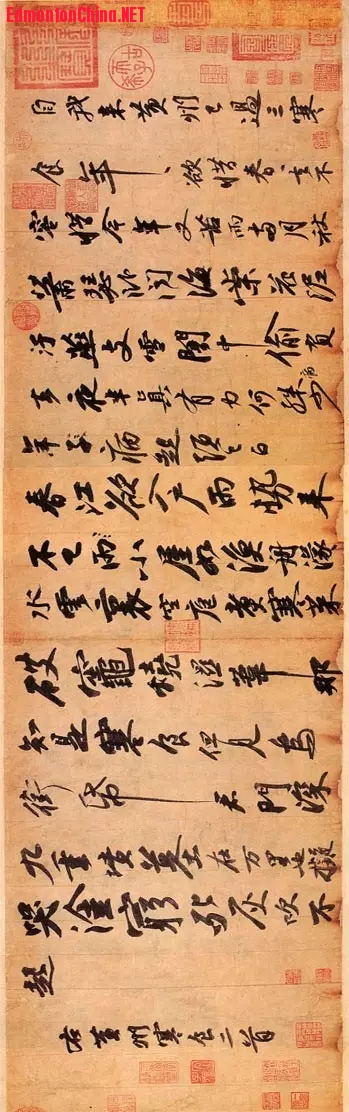 EdmontonChina.NET
自我來黃州已過三寒
食年々欲惜春春去不
容惜今年又苦雨兩月秋
蕭瑟臥聞海棠花泥
汙燕支雪闇中偷負
去夜半真有力何殊病少
年子病起頭已白
春江欲入戶雨勢來
不已雨小屋如漁舟濛々
水雲裏空庖煮寒菜
破竈燒濕葦那
知是寒食但見烏
銜帋君門深
九重墳墓在万里也擬
哭塗窮死灰吹不
起
右黃州寒食二首